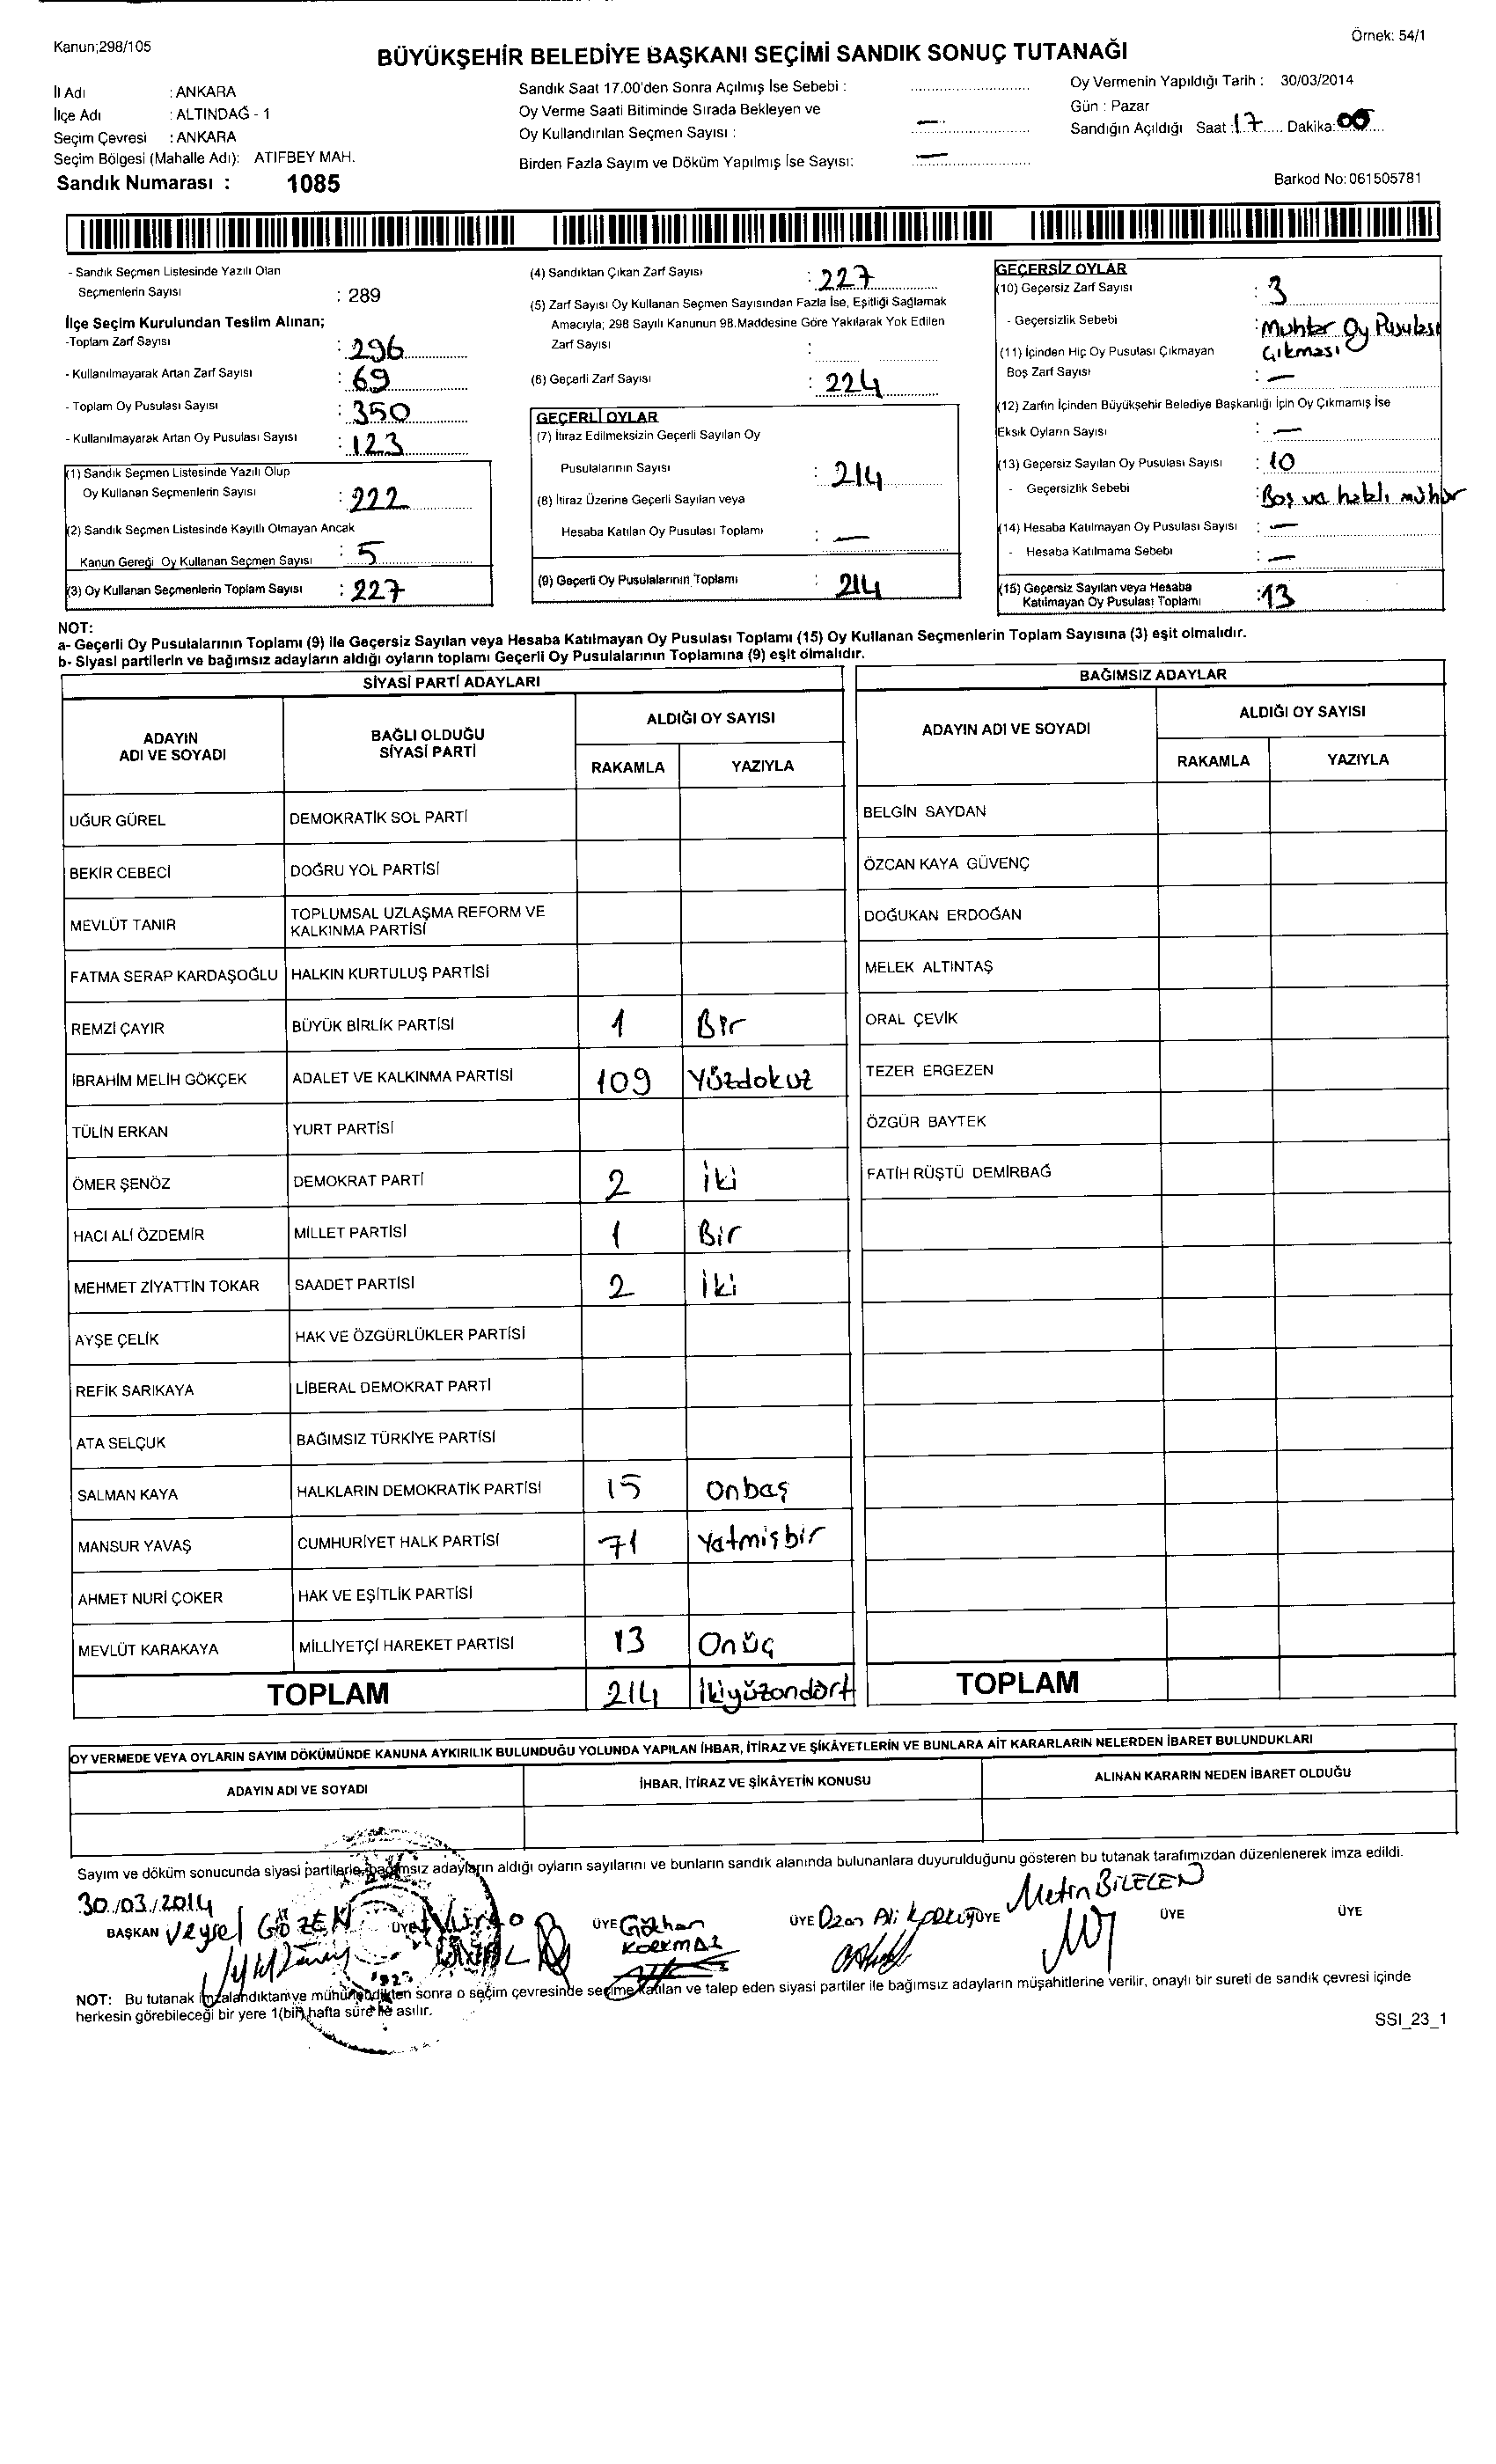 Kanun;298/105
Örnek: 54/1
BÜYÜKŞEHİR BELEDİYE BAŞKANI SEÇİMİ SANDIK SONUÇ TUTANAĞI
İl Adı : ANKARA
İlçe Adı : ALTINDAĞ - 1
Seçim Çevresi : ANKARA
Seçim Bölgesi (Mahalle Adı): ATIFBEY MAH.
Sandık Numarası : 1085
Sandık Saat 17.00'den Sonra Açılmış İse Sebebi :
Oy Verme Saati Bitiminde Sırada Bekleyen ve
Oy Kullandırılan Seçmen Sayısı : —
Birden Fazla Sayım ve Döküm Yapılmış İse Sayısı: —
Oy Vermenin Yapıldığı Tarih : 30/03/2014
Gün : Pazar
Sandığın Açıldığı Saat :17 Dakika:00
Barkod No:061505781
- Sandık Seçmen Listesinde Yazılı Olan
Seçmenlerin Sayısı : 289
İlçe Seçim Kurulundan Teslim Alınan;
-Toplam Zarf Sayısı : 296
- Kullanılmayarak Artan Zarf Sayısı : 69
- Toplam Oy Pusulası Sayısı : 350
- Kullanılmayarak Artan Oy Pusulası Sayısı : 123
(1) Sandık Seçmen Listesinde Yazılı Olup
Oy Kullanan Seçmenlerin Sayısı : 222
(2) Sandık Seçmen Listesinde Kayıtlı Olmayan Ancak
Kanun Gereği Oy Kullanan Seçmen Sayısı : 5
(3) Oy Kullanan Seçmenlerin Toplam Sayısı : 227
(4) Sandıktan Çıkan Zarf Sayısı : 227
(5) Zarf Sayısı Oy Kullanan Seçmen Sayısından Fazla İse, Eşitliği Sağlamak
Amacıyla; 298 Sayılı Kanunun 98.Maddesine Göre Yakılarak Yok Edilen
Zarf Sayısı :
(6) Geçerli Zarf Sayısı : 224
GEÇERLİ OYLAR
(7) İtiraz Edilmeksizin Geçerli Sayılan Oy
Pusulalarının Sayısı : 214
(8) İtiraz Üzerine Geçerli Sayılan veya
Hesaba Katılan Oy Pusulası Toplamı : —
(9) Geçerli Oy Pusulalarının Toplamı : 214
GEÇERSİZ OYLAR
(10) Geçersiz Zarf Sayısı : 3
- Geçersizlik Sebebi : Muhtar Oy Pusulası
Çıkması
(11) İçinden Hiç Oy Pusulası Çıkmayan
Boş Zarf Sayısı : —
(12) Zarfın İçinden Büyükşehir Belediye Başkanlığı İçin Oy Çıkmamış İse
Eksik Oyların Sayısı : —
(13) Geçersiz Sayılan Oy Pusulası Sayısı : 10
- Geçersizlik Sebebi : Boş va hatalı mühür
(14) Hesaba Katılmayan Oy Pusulası Sayısı : —
- Hesaba Katılmama Sebebi : —
(15) Geçersiz Sayılan veya Hesaba
Katılmayan Oy Pusulası Toplamı :13
NOT:
a- Geçerli Oy Pusulalarının Toplamı (9) ile Geçersiz Sayılan veya Hesaba Katılmayan Oy Pusulası Toplamı (15) Oy Kullanan Seçmenlerin Toplam Sayısına (3) eşit olmalıdır.
b- Siyasi partilerin ve bağımsız adayların aldığı oyların toplamı Geçerli Oy Pusulalarının Toplamına (9) eşit olmalıdır.
SİYASİ PARTİ ADAYLARI
ADAYIN ADI VE SOYADI
BAĞLI OLDUĞU SİYASİ PARTİ
ALDIĞI OY SAYISI
RAKAMLA YAZIYLA
UĞUR GÜREL DEMOKRATİK SOL PARTİ
BEKİR CEBECİ DOĞRU YOL PARTİSİ
MEVLÜT TANIR TOPLUMSAL UZLAŞMA REFORM VE
KALKINMA PARTİSİ
FATMA SERAP KARDAŞOĞLU HALKIN KURTULUŞ PARTİSİ
REMZİ ÇAYIR BÜYÜK BİRLİK PARTİSİ 1 Bir
İBRAHİM MELİH GÖKÇEK ADALET VE KALKINMA PARTİSİ 109 Yüzdokuz
TÜLİN ERKAN YURT PARTİSİ
ÖMER ŞENÖZ DEMOKRAT PARTİ 2 İki
HACI ALİ ÖZDEMİR MİLLET PARTİSİ 1 Bir
MEHMET ZİYATTİN TOKAR SAADET PARTİSİ 2 İki
AYŞE ÇELİK HAK VE ÖZGÜRLÜKLER PARTİSİ
REFİK SARIKAYA LİBERAL DEMOKRAT PARTİ
ATA SELÇUK BAĞIMSIZ TÜRKİYE PARTİSİ
SALMAN KAYA HALKLARIN DEMOKRATİK PARTİSİ 15 Onbaş
MANSUR YAVAŞ CUMHURİYET HALK PARTİSİ 71 Yatmişbir
AHMET NURİ ÇOKER HAK VE EŞİTLİK PARTİSİ
MEVLÜT KARAKAYA MİLLİYETÇİ HAREKET PARTİSİ 13 Onüç
TOPLAM 214 İkiyüzondört
BAĞIMSIZ ADAYLAR
ADAYIN ADI VE SOYADI
ALDIĞI OY SAYISI
RAKAMLA YAZIYLA
BELGİN SAYDAN
ÖZCAN KAYA GÜVENÇ
DOĞUKAN ERDOĞAN
MELEK ALTINTAŞ
ORAL ÇEVİK
TEZER ERGEZEN
ÖZGÜR BAYTEK
FATİH RÜŞTÜ DEMİRBAĞ
TOPLAM
OY VERMEDE VEYA OYLARIN SAYIM DÖKÜMÜNDE KANUNA AYKIRILIK BULUNDUĞU YOLUNDA YAPILAN İHBAR, İTİRAZ VE ŞİKÂYETLERİN VE BUNLARA AİT KARARLARIN NELERDEN İBARET BULUNDUKLARI
ADAYIN ADI VE SOYADI İHBAR, İTİRAZ VE ŞİKÂYETİN KONUSU ALINAN KARARIN NEDEN İBARET OLDUĞU
Sayım ve döküm sonucunda siyasi partilerle, bağımsız adayların aldığı oyların sayılarını ve bunların sandık alanında bulunanlara duyurulduğunu gösteren bu tutanak tarafımızdan düzenlenerek imza edildi.
30/03/2014
BAŞKAN Veysel GÖZEN ÜYE ÜYE Gökhan KORKMAZ ÜYE Ozan Ali ÜYE Metin BİLECEN ÜYE ÜYE
NOT: Bu tutanak imzalandıktan ve mühürlendikten sonra o seçim çevresinde seçime katılan ve talep eden siyasi partiler ile bağımsız adayların müşahitlerine verilir, onaylı bir sureti de sandık çevresi içinde
herkesin görebileceği bir yere 1(bir) hafta süre ile asılır.
SSI_23_1